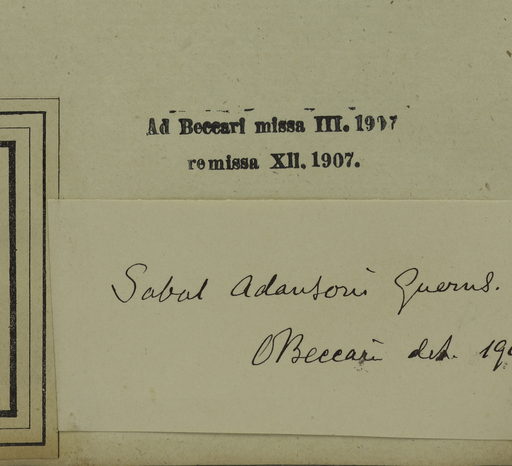 Ad Beccari missa III. 1907
remissa XII. 1907.
Sabal Adansoni Guerns.
OBeccari det. 190